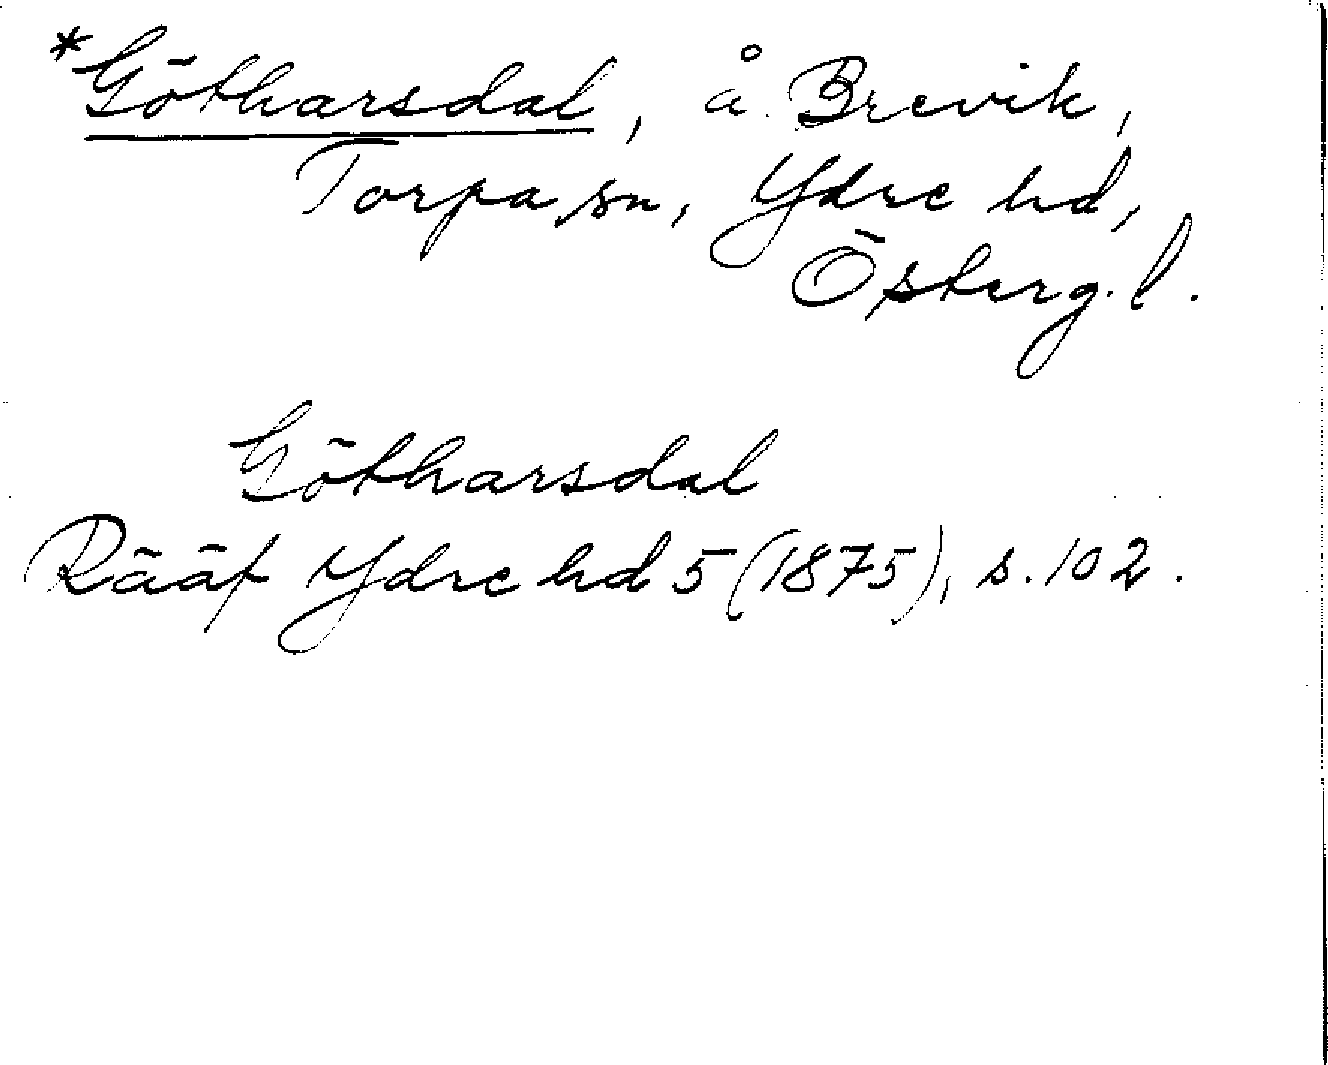 *Götharsdal, å Brevik,
Torpa sn, Ydre hd,
Österg. l.
Götharsdal
Rääf Ydre hd 5 (1875), s. 102.